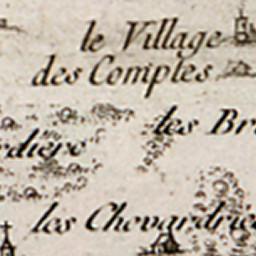 le Village
des Comptes
les Br
rdiere
les Chevardrie